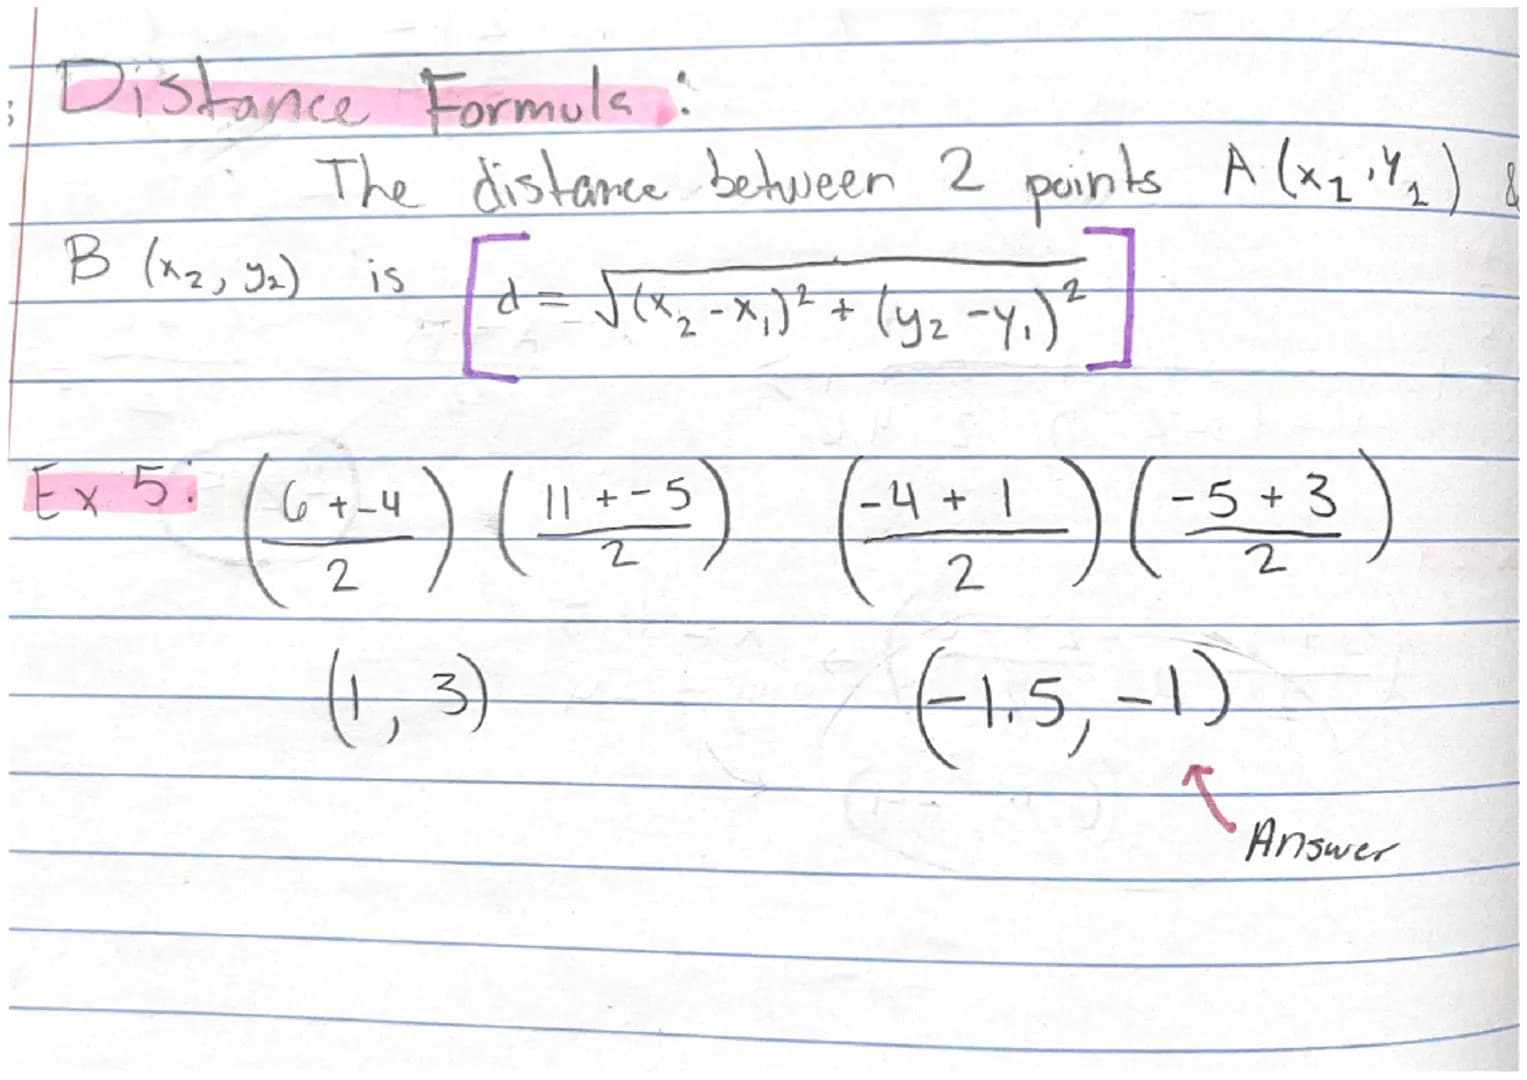 Distance Formula:
The distance between 2 points A(x₁,y₁) &
B (x₂, y₂) is [d = √(x₂-x₁)² + (y₂-y₁)²]
Ex 5: (6+-4/2) (11+-5/2) (-4+1/2) (-5+3/2)
(1, 3) (-1.5, -1)
Answer